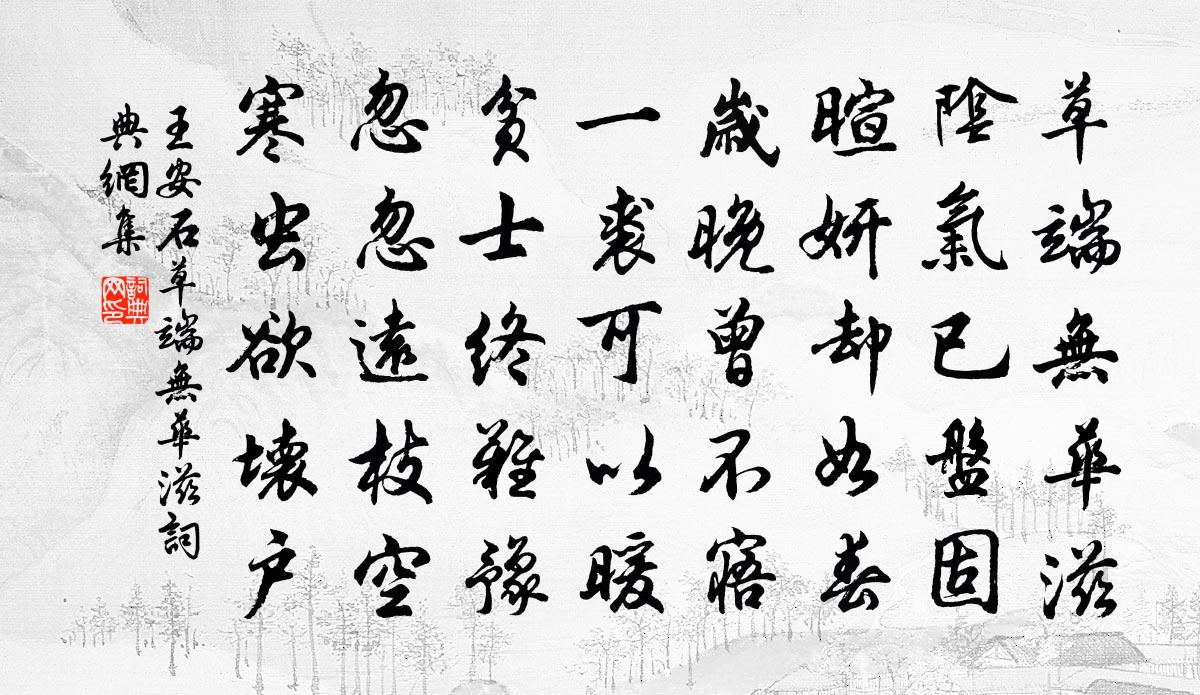 草端無華滋
陰氣已盤固
暄妍却如春
歲晚曾不寤
一裘可以暖
貧士終難豫
忽忽遠枝空
寒虫欲壞户
王安石草端無華滋詞
典網集
詞典
网印